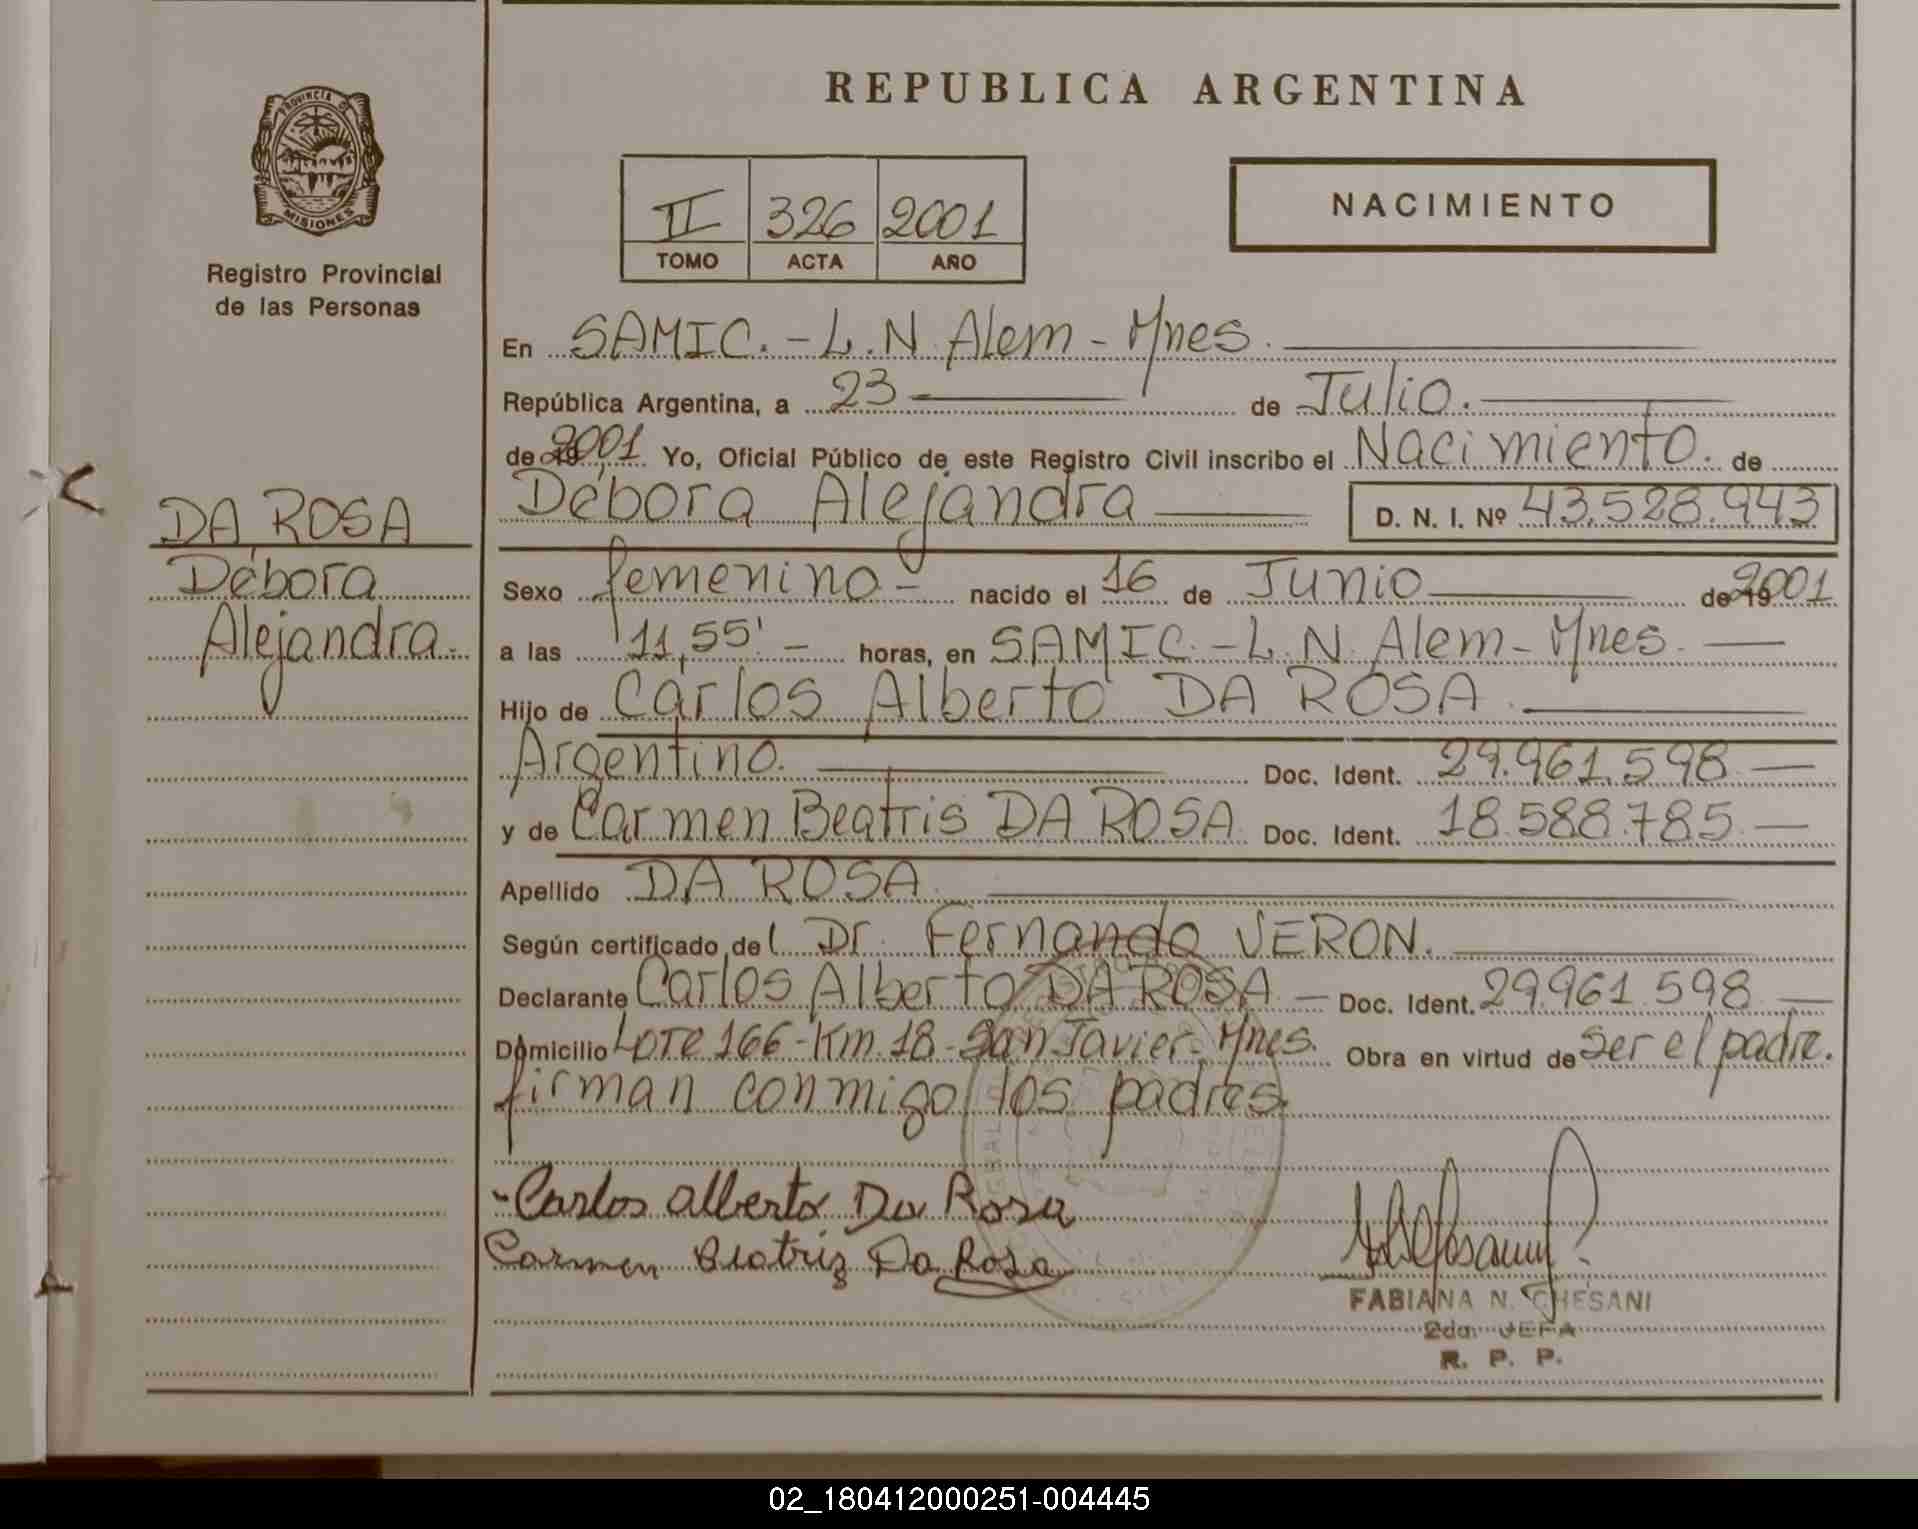 REPUBLICA ARGENTINA
PROVINCIA D
MISIONES
Registro Provincial
de las Personas
II 326 2001
TOMO ACTA AÑO
NACIMIENTO
En SAMIC.-L.N.Alem-Mnes.
República Argentina, a 23 de Julio.
de 2001 Yo, Oficial Público de este Registro Civil inscribo el Nacimiento. de
Débora Alejandra D. N. I. Nº 43.528.943
DA ROSA
Débora
Alejandra.
Sexo femenino - nacido el 16 de Junio de 2001
a las 11,55' - horas, en SAMIC.-L.N.Alem-Mnes.
Hijo de Carlos Alberto DA ROSA
Argentino. Doc. Ident. 29.961.598
y de Carmen Beatris DA ROSA Doc. Ident. 18.588.785
Apellido DA ROSA
Según certificado del Dr. Fernando VERON.
Declarante Carlos Alberto DA ROSA - Doc. Ident. 29.961.598
Domicilio Lote 166-Km.18-San Javier-Mnes. Obra en virtud de ser el padre.
firman conmigo los padres.
Carlos alberto Da Rosa
Carmen Beatriz Da Rosa
FABIANA N. CHESANI
2da. JEFA
R. P. P.
02_180412000251-004445